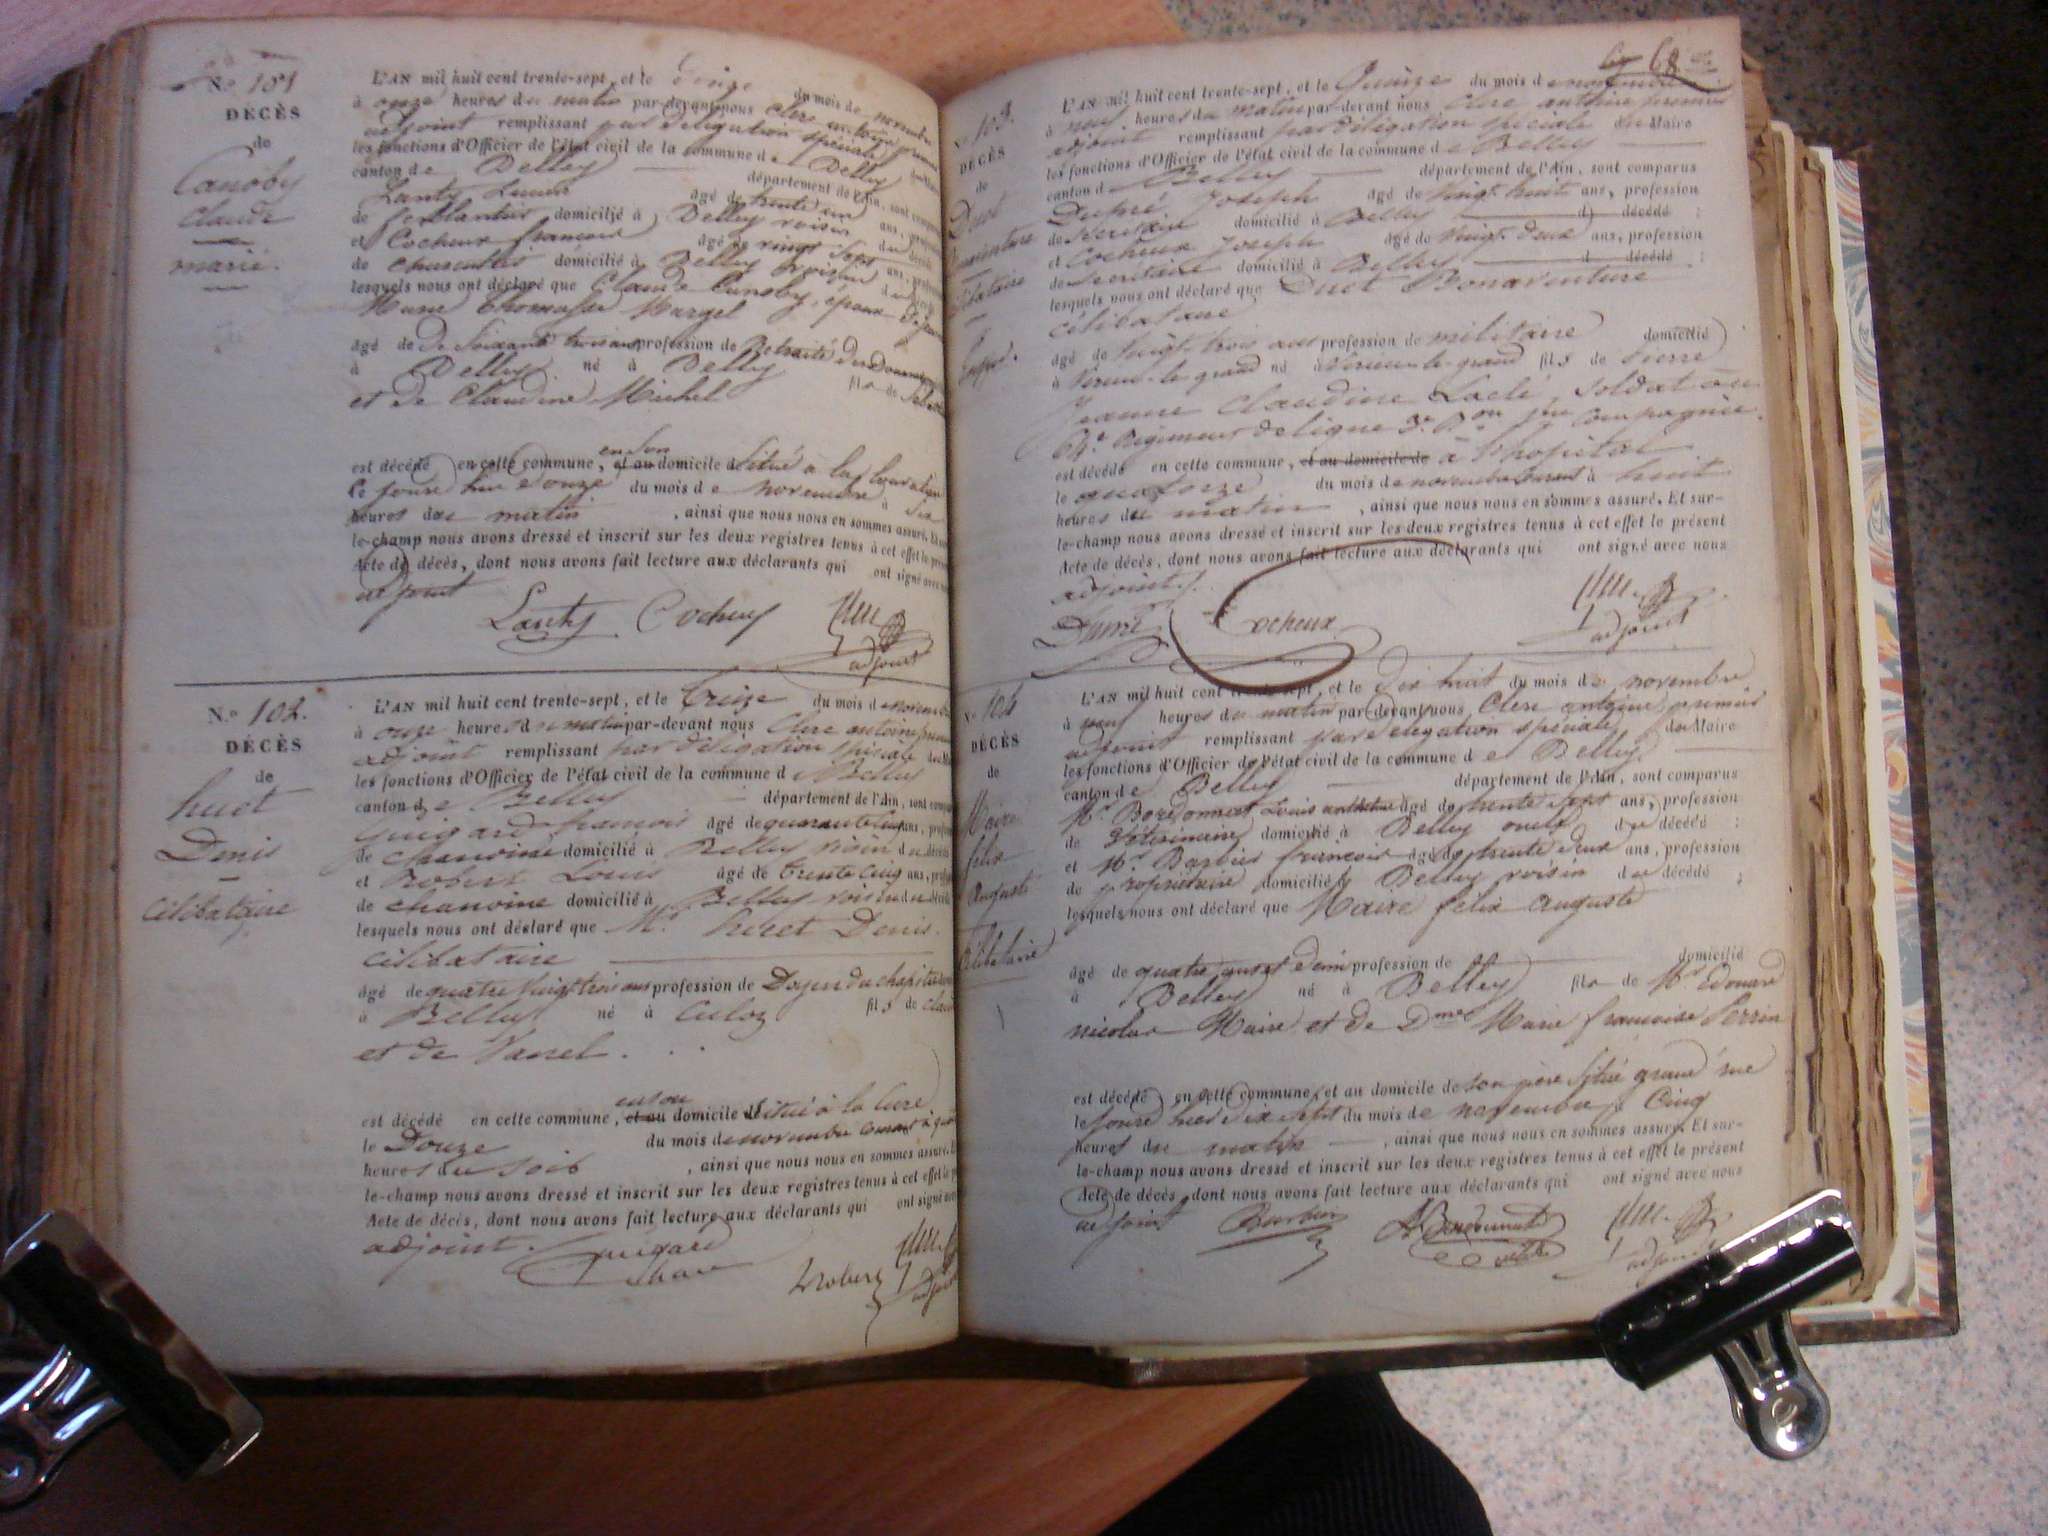 N.o 101
DÉCÈS
de
Canoby
Claude
marié.
L'AN mil huit cent trente-sept, et le onze du mois de novembre
à onze heures du matin par-devant nous Clerc antoine premier
adjoint remplissant par délégation spéciale du Maire
les fonctions d'Officier de l'état civil de la commune de Belley
canton de Belley département de l'Ain, sont comparus
Lanty âgé de trente un ans, profession
de ferblantier domicilié à Belley voisin du décédé
et Cocheux françois âgé de vingt sept ans, profession
de charcutier domicilié à Belley voisin du décédé
lesquels nous ont déclaré que Claude Canoby, époux de
Marie thomasse Margel
âgé de de Soixante trois ans profession de Retraité des Douanes
à Belley né à Belley fils de
et de Claudine Michel
est décédé en cette commune, en son et au domicile de situé à la
le jourd'hui onze du mois de novembre à six
heures du matin, ainsi que nous nous en sommes assuré. Et sur-
le-champ nous avons dressé et inscrit sur les deux registres tenus à cet effet le présent
Acte de décès, dont nous avons fait lecture aux déclarants qui ont signé avec nous
adjoint
Lanty Cocheux
adjoint
N.o 102.
DÉCÈS
de
huet
Denis
célibataire
L'AN mil huit cent trente-sept, et le treize du mois de novembre
à onze heures du matin par-devant nous Clerc antoine premier
adjoint remplissant par délégation spéciale du Maire
les fonctions d'Officier de l'état civil de la commune de Belley
canton de Belley département de l'Ain, sont comparus
Guigard françois âgé de quarante cinq ans, profession
de chanoine domicilié à Belley voisin du décédé
et robert Louis âgé de trente cinq ans, profession
de chanoine domicilié à Belley voisin du décédé
lesquels nous ont déclaré que Mr. huet Denis.
célibataire
âgé de quatre vingt trois ans profession de Doyen du chapitre
à Belley né à Culoz fils de Claude
et de Vanel.
est décédé en cette commune, en son et au domicile de situé à la Cure
le Douze du mois de novembre courant à
heures du soir, ainsi que nous nous en sommes assuré. Et
le-champ nous avons dressé et inscrit sur les deux registres tenus à cet effet le
Acte de décès, dont nous avons fait lecture aux déclarants qui ont signé avec
adjoint.
Guigard
chan
L robert
adjoint
68
N.o 103.
DÉCÈS
de
Duet
Bonaventure
célibataire
L'AN mil huit cent trente-sept, et le Quinze du mois de novembre
à neuf heures du matin par-devant nous Clerc antoine premier
adjoint remplissant par délégation spéciale du Maire
les fonctions d'Officier de l'état civil de la commune de Belley
canton de Belley département de l'Ain, sont comparus
Dupré Joseph âgé de vingt huit ans, profession
de Secrétaire domicilié à Belley d décédé ;
et Cocheux Joseph âgé de vingt deux ans, profession
de Secrétaire domicilié à Belley d décédé ;
lesquels nous ont déclaré que Duet Bonaventure
célibataire
âgé de vingt trois ans profession de militaire domicilié
à Virieu-le-grand né à Virieu-le-grand fils de pierre
Jeanne Claudine Laclé, soldat au
64e Régiment de ligne 3e Bon 1ère Compagnie
est décédé en cette commune, et au domicile de à l'hopital
le quatorze du mois de novembre courant à huit
heures du matin, ainsi que nous nous en sommes assuré. Et sur-
le-champ nous avons dressé et inscrit sur les deux registres tenus à cet effet le présent
Acte de décès, dont nous avons fait lecture aux déclarants qui ont signé avec nous
adjoint.
Dupré Cocheux
adjoint
N.o 104
DÉCÈS
de
Maire
félix
Auguste
Célibataire
L'AN mil huit cent trente-sept, et le dix huit du mois de novembre
à neuf heures du matin par-devant nous Clerc antoine premier
adjoint remplissant par délégation spéciale du Maire
les fonctions d'Officier de l'état civil de la commune de Belley
canton de Belley département de l'Ain, sont comparus
Mr. Louis âgé de trente sept ans, profession
de Vétérinaire domicilié à Belley oncle du décédé ;
et Mr. Barbier françois âgé de trente deux ans, profession
de propriétaire domicilié à Belley voisin du décédé ;
lesquels nous ont déclaré que Maire félix auguste
âgé de quatre ans et demi profession de domicilié
à Belley né à Belley fils de Mr Edouard
nicolas Maire et de Dme Marie françoise Perrin
est décédé en cette commune, et au domicile de son père situé grand'rue
le jour d'hier dix sept du mois de novembre à Cinq
heures du matin, ainsi que nous nous en sommes assuré. Et sur-
le-champ nous avons dressé et inscrit sur les deux registres tenus à cet effet le présent
Acte de décès, dont nous avons fait lecture aux déclarants qui ont signé avec nous
adjoint Barbier
adjoint